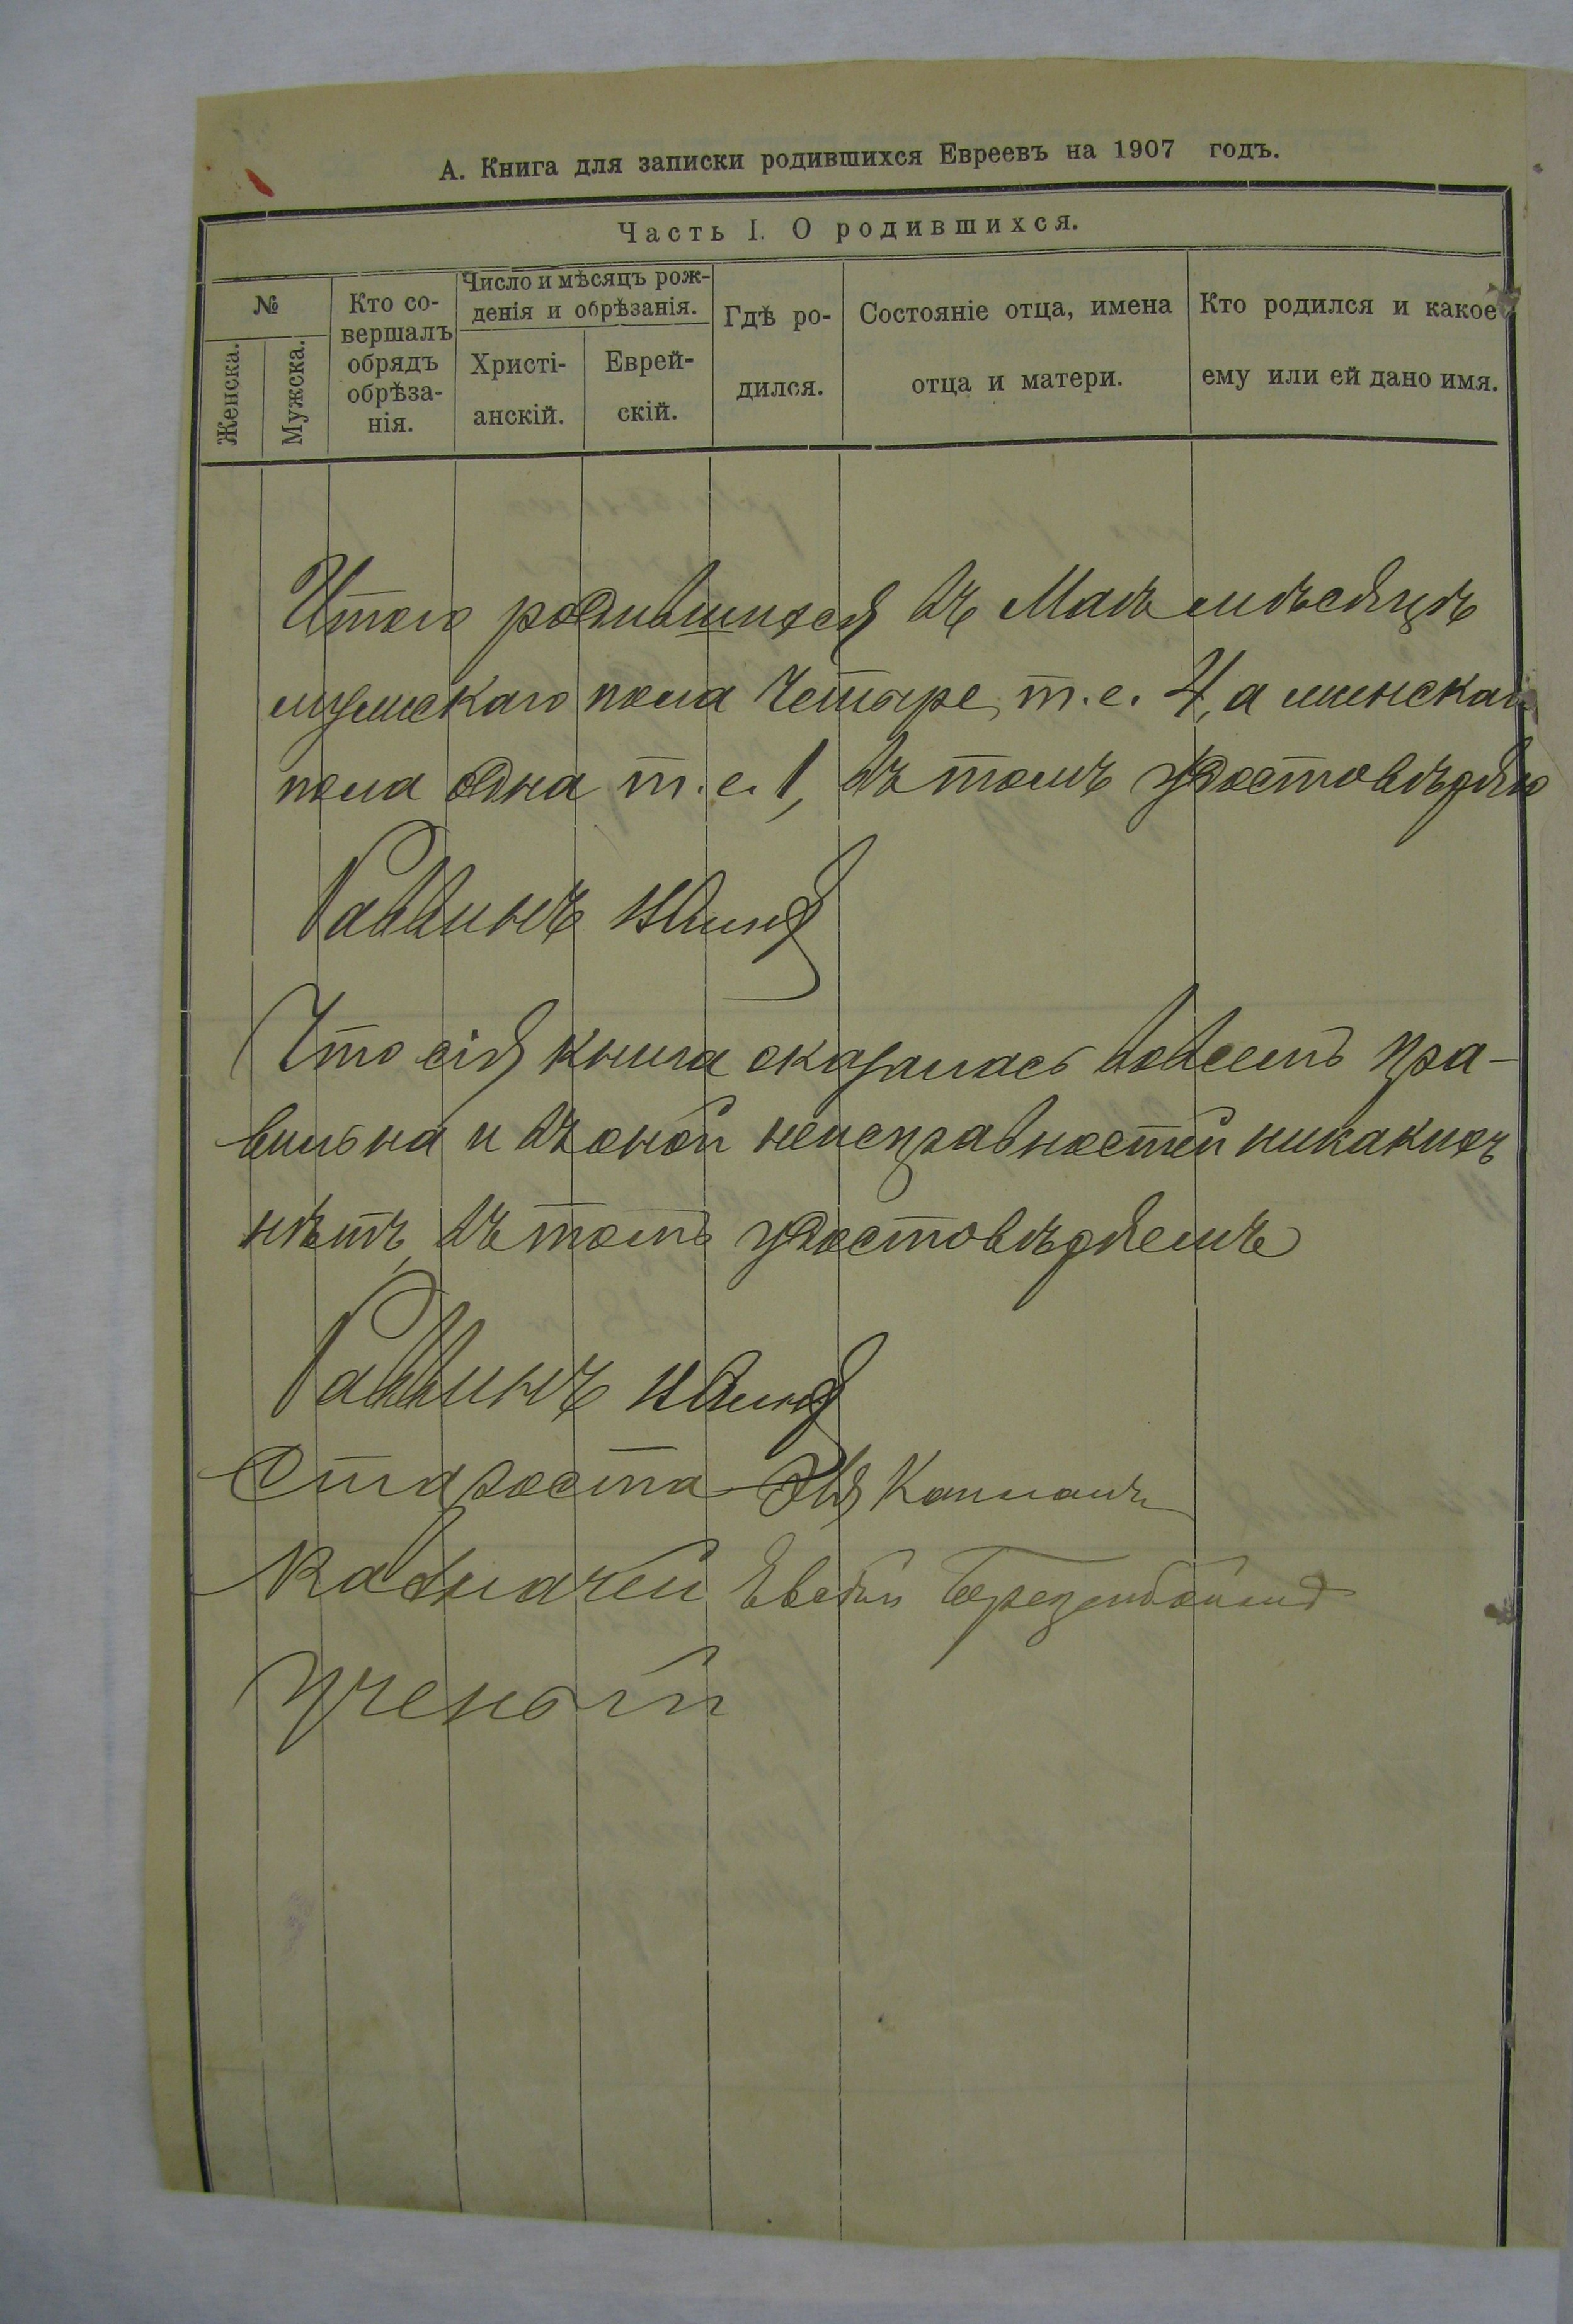 А. Книга для записки родившихся Евреевъ на 1907 годъ.
Часть I. О родившихся.
№
Женска.
Мужска.
Кто со-
вершалъ
обрядъ
обрѣза-
нія.
Число и мѣсяцъ рож-
денія и обрѣзанія.
Христі-
анскій.
Еврей-
скій.
Гдѣ ро-
дился.
Состояніе отца, имена
отца и матери.
Кто родился и какое
ему или ей дано имя.
Итого родившихся въ Маѣ мѣсяцѣ
мужскаго пола четыре, т.е. 4, а женскаго
пола одна т.е. 1, въ томъ удостовѣряю
Раввинъ
Что сія книга оказалась вовсемъ пра-
вильна и въ оной неисправностей никакихъ
нѣтъ, въ томъ удостовѣряемъ
Раввинъ
Староста Капланъ
Казначей
Ученый